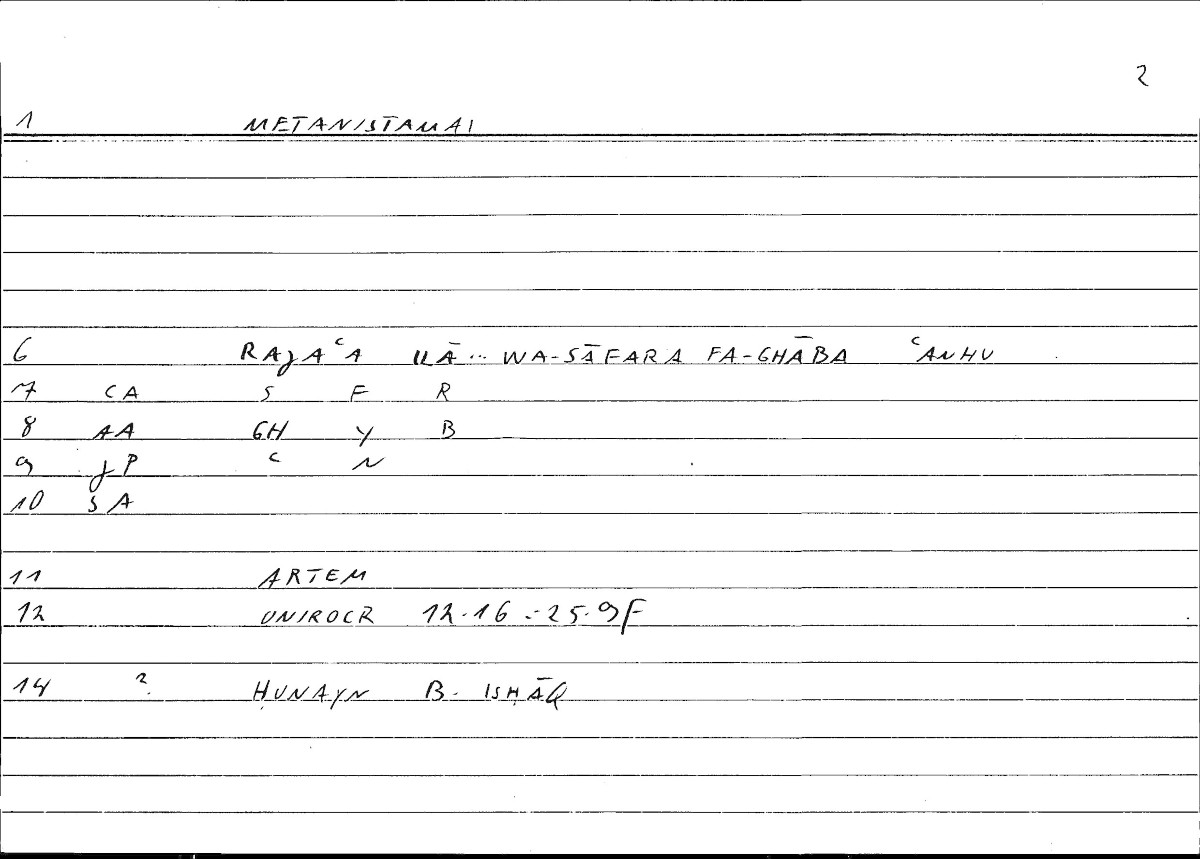 2
1 METANISTAMAI
6 RAJAʿA ILĀ... WA-SĀFARA FA-GHĀBA ʿANHU
7 CA S F R
8 AA GH Y B
9 JP ʿ N
10 SA
11 ARTEM
12 ONIROCR 12.16 - 25.9F
14 ? ḤUNAYN B. ISḤĀQ